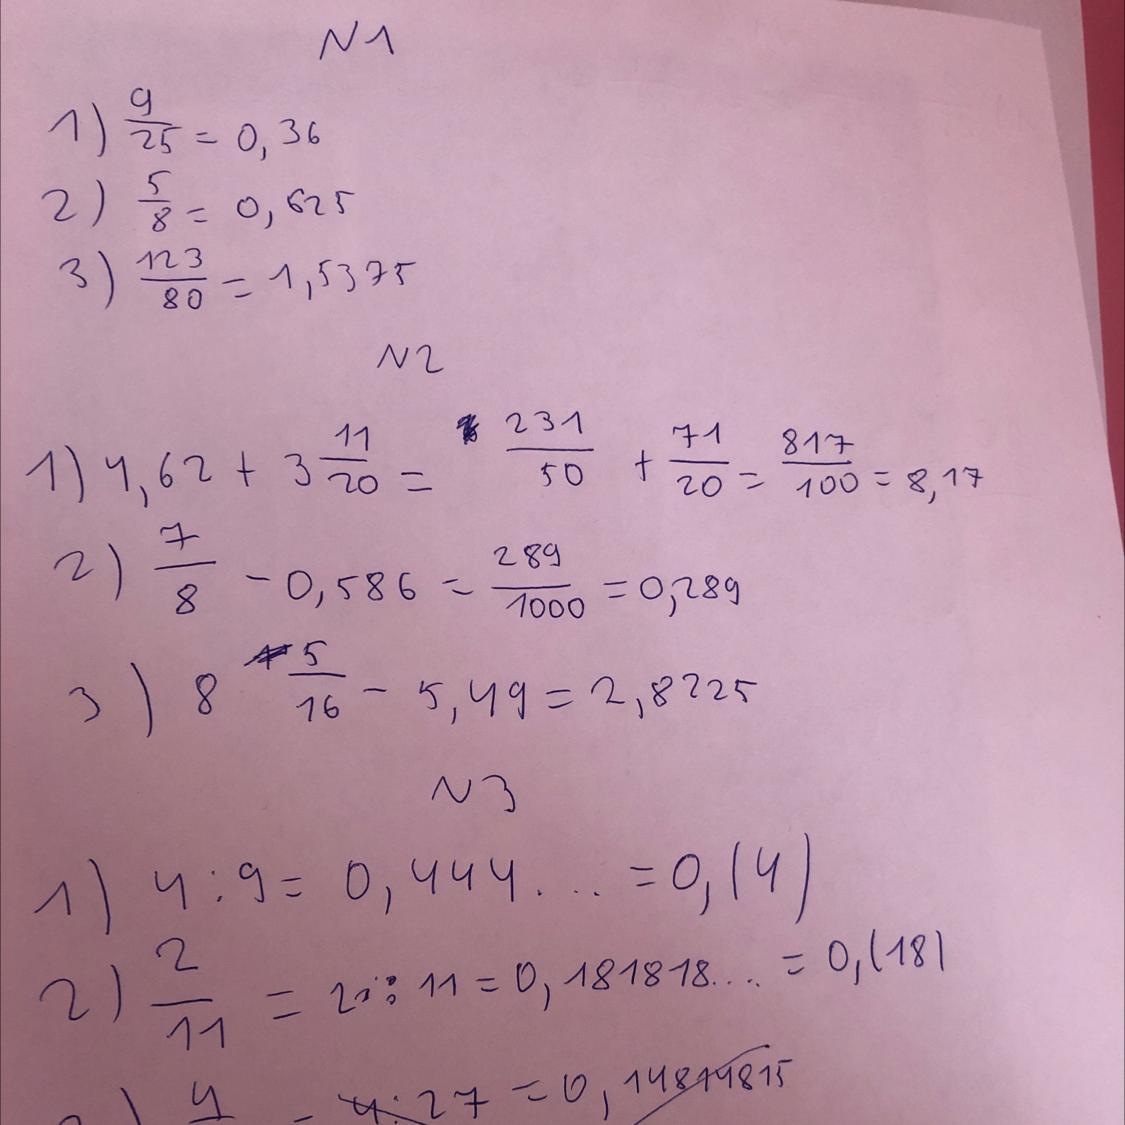 N1
1) 9/25 = 0,36
2) 5/8 = 0,625
3) 123/80 = 1,5375
N2
1) 4,62 + 3 11/20 = 231/50 + 71/20 = 817/100 = 8,17
2) 7/8 - 0,586 = 289/1000 = 0,289
3) 8 5/16 - 5,49 = 2,8225
N3
1) 4 : 9 = 0,444... = 0,(4)
2) 2/11 = 2 : 11 = 0,181818... = 0,(18)
4 = 4:27 = 0,14814815